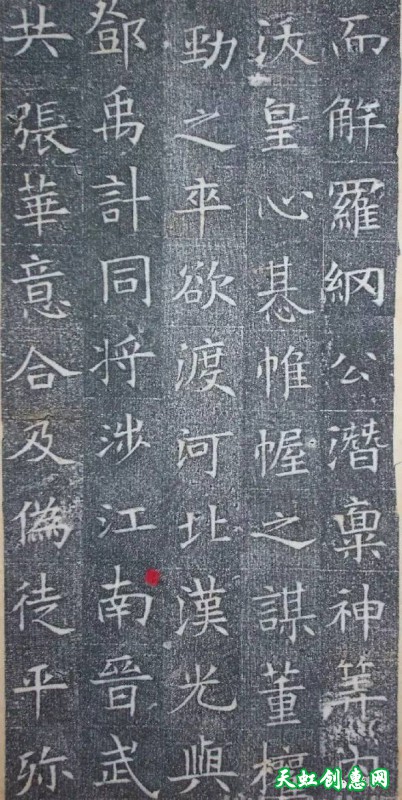 而解羅網公潛稟神筭
沃皇心惎帷幄之謀董
勁之卒欲渡河北漢光與
鄧禹計同將涉江南晉武
共張華意合及偽徒平殄
天虹创意网